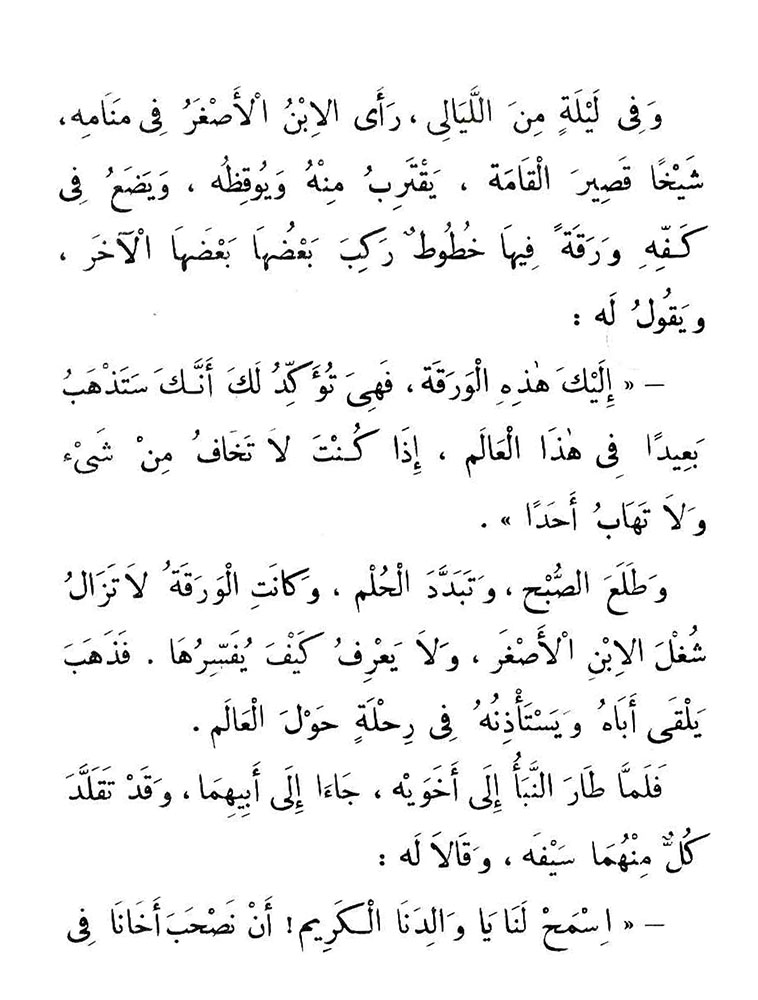 وَفِى لَيْلَةٍ مِنَ اللَّيَالِى ، رَأَى الاِبْنُ الْأَصْغَرُ فِى مَنَامِهِ،
شَيْخًا قَصِيرَ الْقَامَة ، يَقْتَرِبُ مِنْهُ وَيُوقِظُه ، وَيَضَعُ فِى
كَفِّهِ وَرَقَةً فِيهَا خُطُوطٌ رَكِبَ بَعْضُهَا بَعْضَهَا الْآخَرَ ،
وَيَقُولُ لَه :
— « إِلَيْكَ هٰذِهِ الْوَرَقَة ، فَهِىَ تُؤَكِّدُ لَكَ أَنَّكَ سَتَذْهَبُ
بَعِيدًا فِى هٰذَا الْعَالَم ، إِذَا كُنْتَ لاَ تَخَافُ مِنْ شَىْء
وَلاَ تَهَابُ أَحَدًا » .
وَطَلَعَ الصُّبْح ، وَتَبَدَّدَ الْحُلْم ، وَكَانَتِ الْوَرَقَةُ لاَ تَزَالُ
شُغْلَ الاِبْنِ الْأَصْغَرِ ، وَلاَ يَعْرِفُ كَيْفَ يُفَسِّرُهَا . فَذَهَبَ
يَلْقَى أَبَاهُ وَيَسْتَأْذِنُهُ فِى رِحْلَةٍ حَوْلَ الْعَالَم .
فَلَمَّا طَارَ النَّبَأُ إِلَى أَخَوَيْه ، جَاءَا إِلَى أَبِيهِمَا ، وَقَدْ تَقَلَّدَ
كُلٌّ مِنْهُمَا سَيْفَه ، وَقَالاَ لَه :
— « اِسْمَحْ لَنَا يَا وَالِدَنَا الْكَرِيم ! أَنْ نَصْحَبَ أَخَانَا فِى